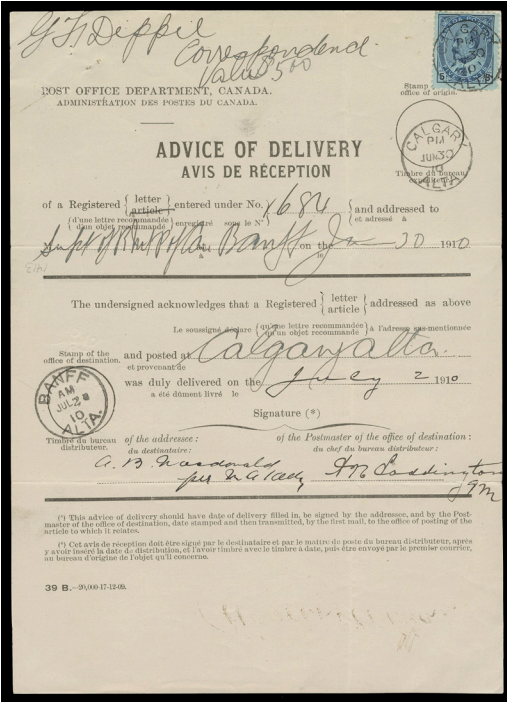 Correspondence
Value $5.00
POST OFFICE DEPARTMENT, CANADA.
ADMINISTRATION DES POSTES DU CANADA.
Stamp of the
office of origin.
CALGARY
PM
JUN 30
10
ALTA.
Timbre du bureau
ADVICE OF DELIVERY
AVIS DE RÉCEPTION
of a Registered { letter article } entered under No. 684 and addressed to
(d'une lettre recommandée d'un objet recommandé) enregistré sous le N° et adressé à
Banff on the Jun 30 1910
à le
The undersigned acknowledges that a Registered { letter article } addressed as above
Le soussigné déclare { qu'une lettre recommandée qu'un objet recommandé } à l'adresse sus-mentionée
Stamp of the
office of destination.
and posted at Calgary Alta.
et provenant de
was duly delivered on the July 2 1910
a été dûment livré le
BANFF
AM
JUL 2
10
ALTA.
Signature (*)
Timbre du bureau
distributeur.
of the addressee: of the Postmaster of the office of destination:
du destinataire: du chef du bureau distributeur:
A. B. Macdonald
per
(*) This advice of delivery should have date of delivery filled in, be signed by the addressee, and by the Post-
master of the office of destination, date stamped and then transmitted, by the first mail, to the office of posting of the
article to which it relates.
(*) Cet avis de réception doit être signé par le destinataire et par le maître de poste du bureau distributeur, après
y avoir inséré la date de distribution, et l'avoir timbré avec le timbre à date, puis être envoyé par le premier courrier,
au bureau d'origine de l'objet qu'il concerne.
39 B.—20,000-17-12-09.